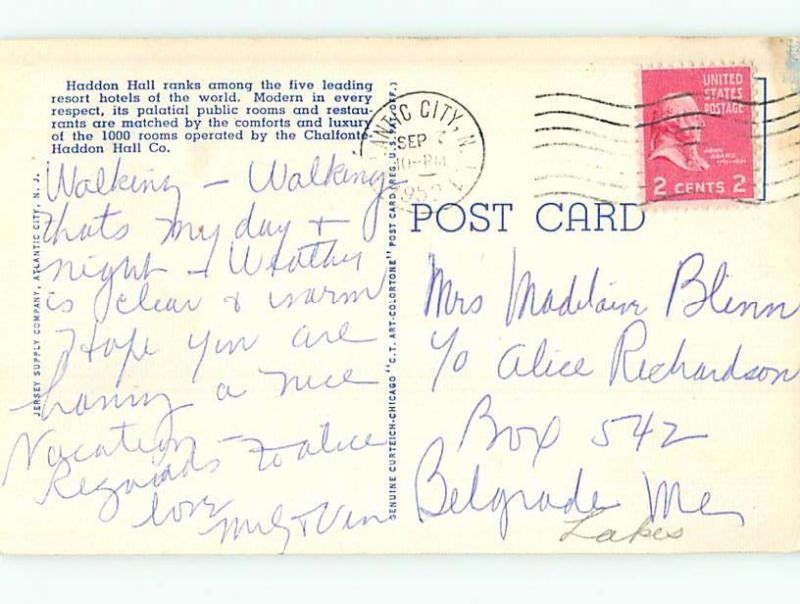 Haddon Hall ranks among the five leading
resort hotels of the world. Modern in every
respect, its palatial public rooms and restau-
rants are matched by the comforts and luxury
of the 1000 rooms operated by the Chalfonte
Haddon Hall Co.
Walking – Walking
thats my day +
night – Weather
is clear & warm
Hope you are
having a nice
Vacation –
Regards to Alice
love
& Vin
JERSEY SUPPLY COMPANY, ATLANTIC CITY, N. J.
GENUINE CURTEICH-CHICAGO "C.T. ART-COLORTONE" POST CARD (REG. U.S. PAT. OFF.)
ANTIC CITY, N.
SEP
10-PM
195
UNITED
STATES
POSTAGE
JOHN
ADAMS
2 CENTS 2
POST CARD
Mrs Madelaine Blinn
c/o Alice Richardson
Box 542
Belgrade Me
Lakes